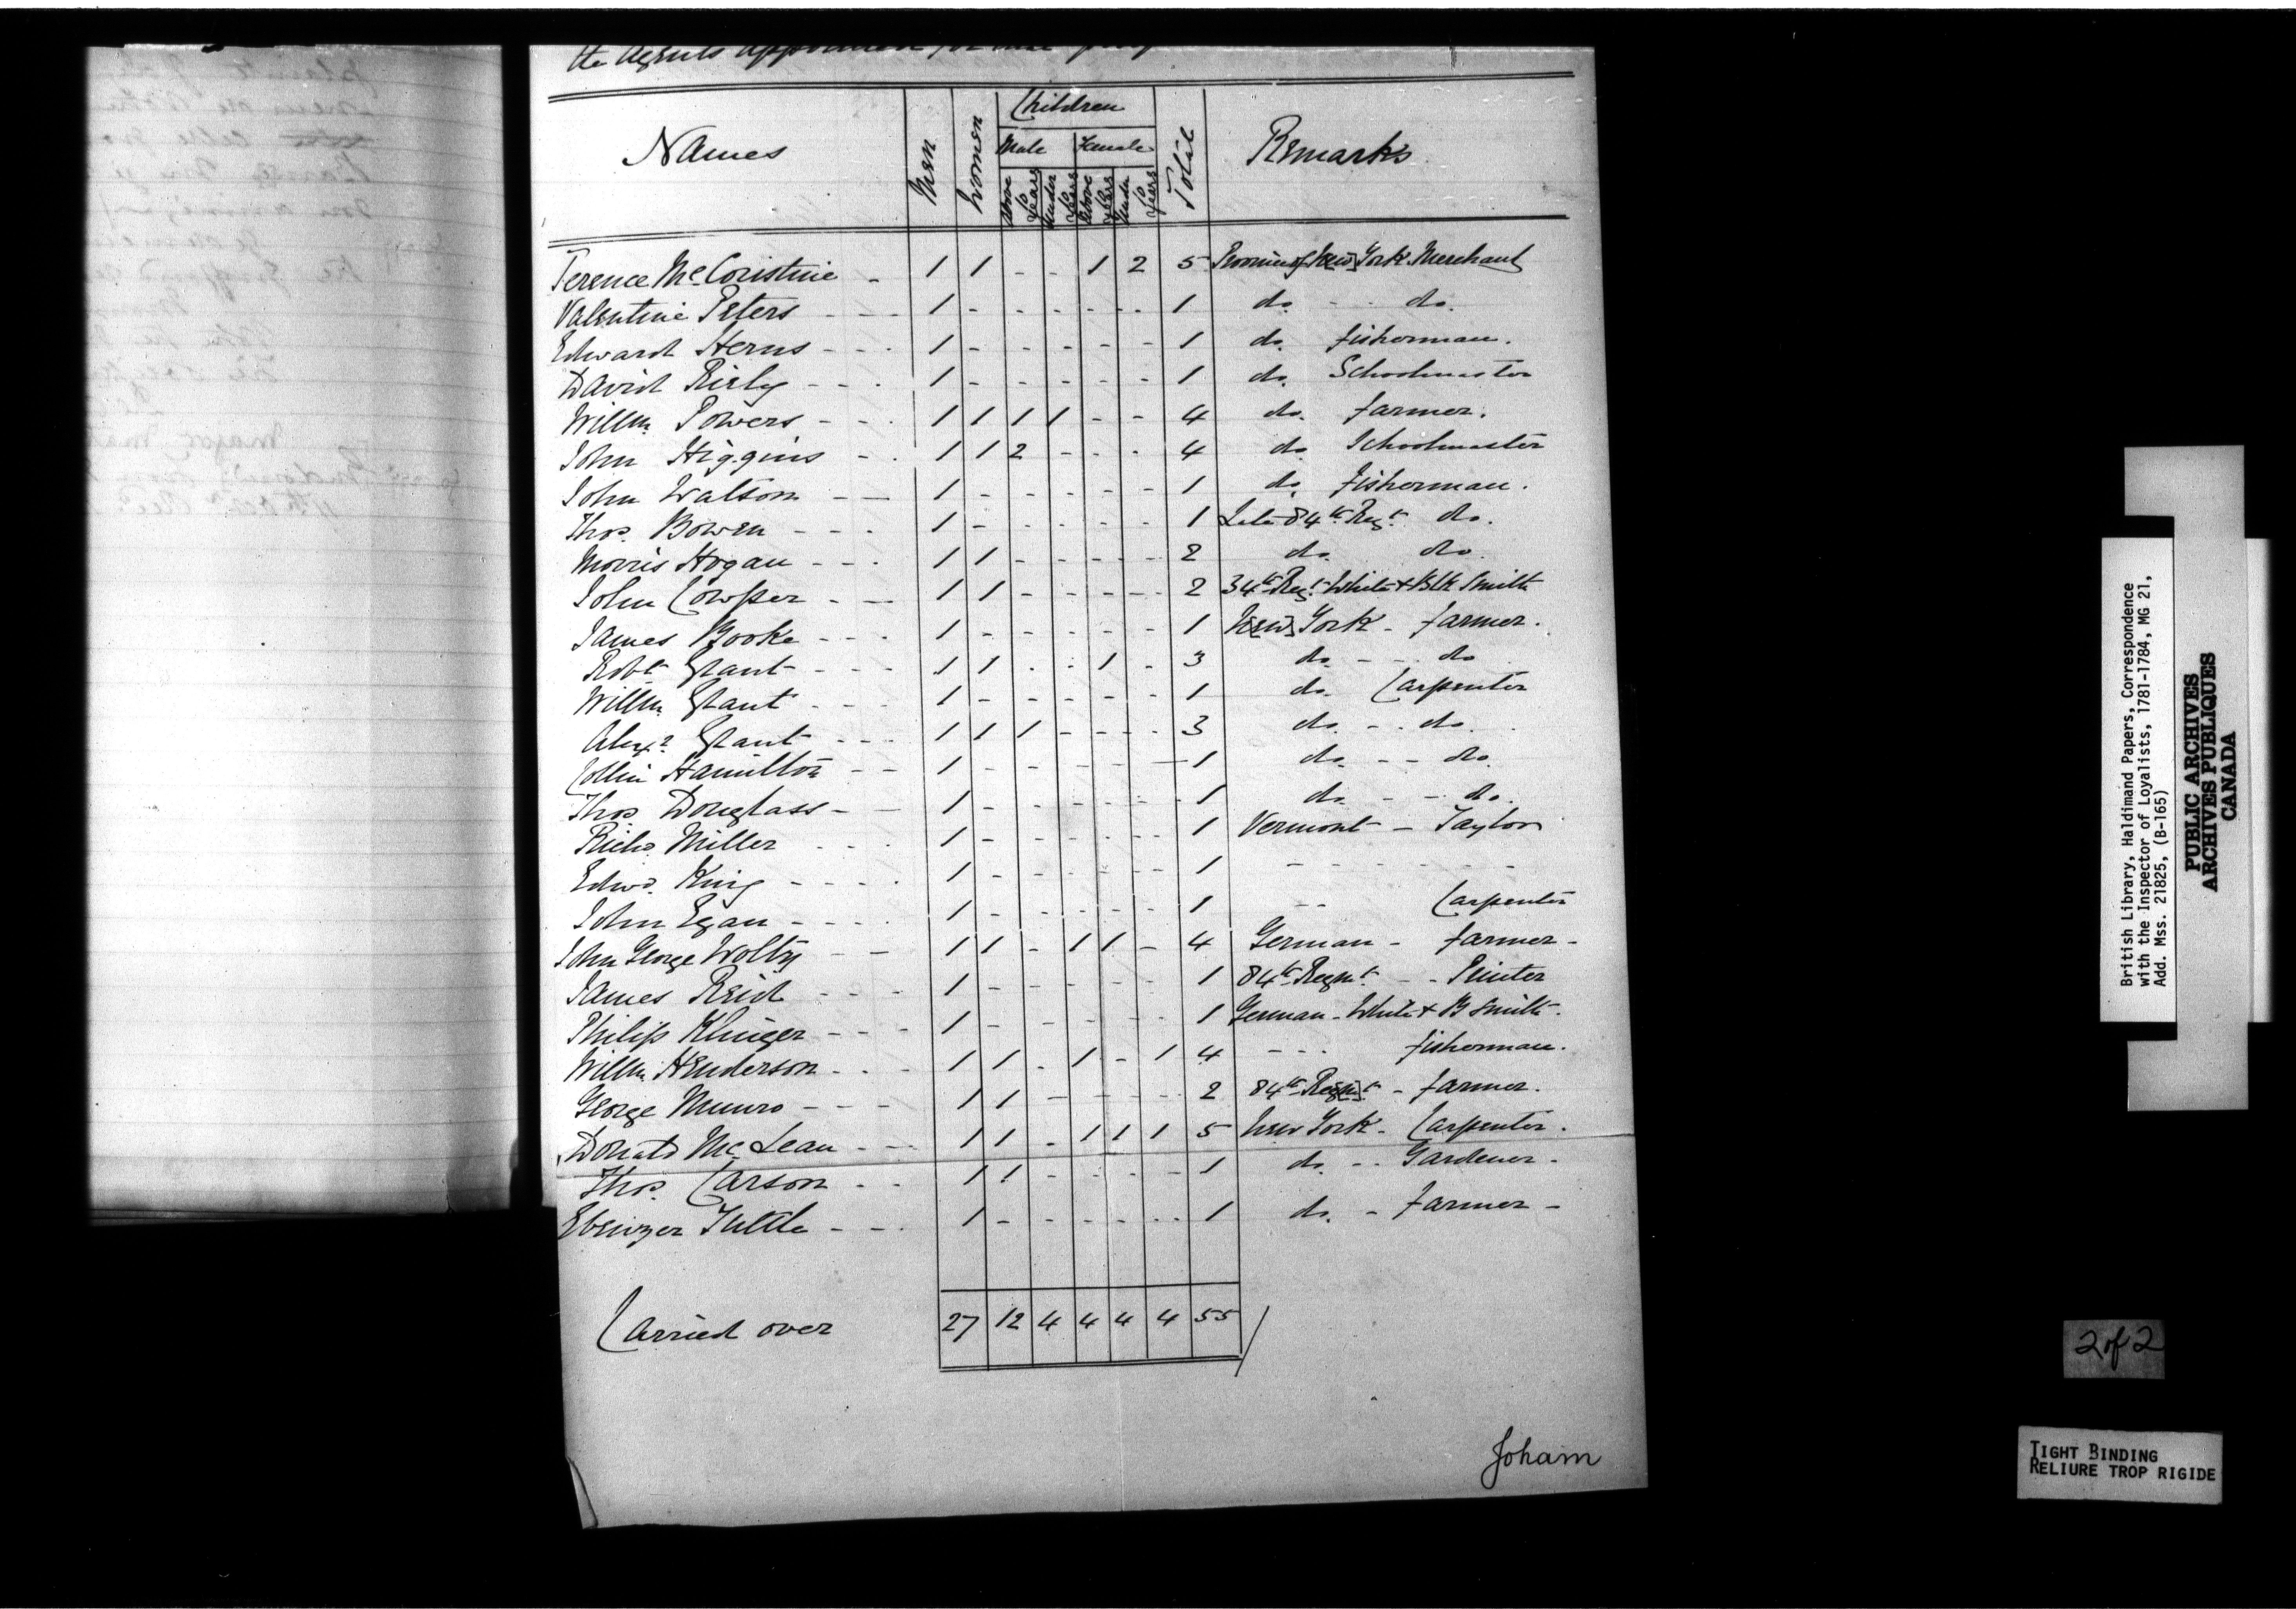 the Agents appointed for that
Names Men Women Children Total Remarks
Male Female
Above 10 Years Under 10 Years Above 10 Years Under 10 Years
Terence McCoristine - 1 1 - - 1 2 5 Province of New York Merchant
Valentine Peters - - - 1 - - - - - 1 do. - - do.
Edward Herns - - - 1 - - - - - 1 do. fisherman.
David Rirly - - - 1 - - - - - 1 do. Schoolmaster
Willm. Powers - - - 1 1 1 1 - - 4 do. farmer.
John Higgins - - 1 1 2 - - - 4 do Schoolmaster
John Watson - - 1 - - - - - 1 do. fisherman.
Thos. Bowen - - - 1 - - - - - 1 Late 84th Regt. do.
Morris Hogan - - - 1 1 - - - - 2 do. do.
John Cowper - - 1 1 - - - - 2 34th Regt. White & Blk Smith
James Booke - - - 1 - - - - - 1 New York - farmer.
Robt. Grant - - - 1 1 - - 1 - 3 do. - - do
Willm. Grant - - - 1 - - - - - 1 do. Carpenter
Alexr. Grant - - - 1 1 1 - - - 3 do. - - do.
Collin Hamilton - - 1 - - - - - 1 do. - - do.
Thos. Douglass - - 1 - - - - - 1 do. - - do.
Richd. Miller - - - 1 - - - - - 1 Vermont - Taylor
Edwd. King - - - - 1 - - - - - 1 - - - - - -
John Egan - - - - 1 - - - - - 1 - - Carpenter
John George Wolty - - 1 1 - 1 1 - 4 German - farmer -
James Reid - - - 1 - - - - - 1 84th Regmt. - - Printer
Philip Klinger - - - 1 - - - - - 1 German - White & B Smith.
Willm. Henderson - - - 1 1 - 1 - 1 4 - - - fisherman.
George Munro - - - 1 1 - - - - 2 84th Regmt. - farmer.
Donald McLean - - 1 1 - 1 1 1 5 New York - Carpenter.
Thos. Carson - - 1 1 - - - - 1 do. - - Gardener -
Ebenezer Tuttle - - - 1 - - - - - 1 do. - farmer -
Carried over 27 12 4 4 4 4 55
Joham
British Library, Haldimand Papers, Correspondence
with the Inspector of Loyalists, 1781-1784, MG 21,
Add. Mss. 21825, (B-165)
PUBLIC ARCHIVES
ARCHIVES PUBLIQUES
CANADA
2 of 2
TIGHT BINDING
RELIURE TROP RIGIDE